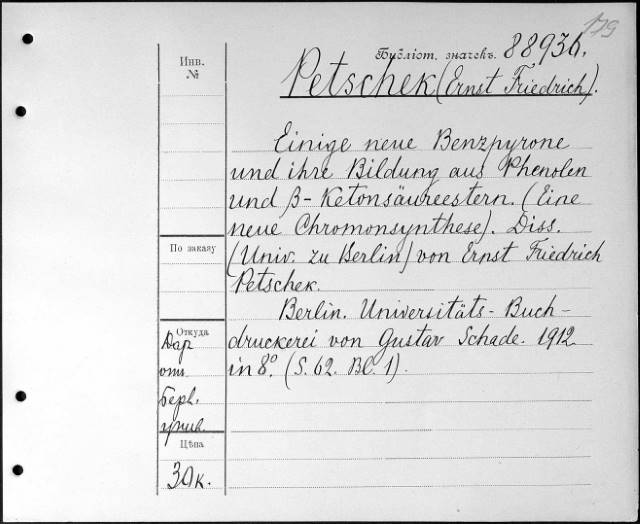 175
Библіот. значекъ. 88936.
Инв.
№
Petschek (Ernst Friedrich).
Einige neue Benzpyrone
und ihre Bildung aus Phenolen
und β-Ketonsäureestern. (Eine
neue Chromonsynthese). Diss.
По заказу
(Univ. zu Berlin) von Ernst Friedrich
Petschek.
Berlin. Universitäts-Buch-
Откуда
druckerei von Gustav Schade. 1912
in 8°. (S. 62. Bl. 1).
Дар
отъ
Берл.
унив.
Цѣна
30к.